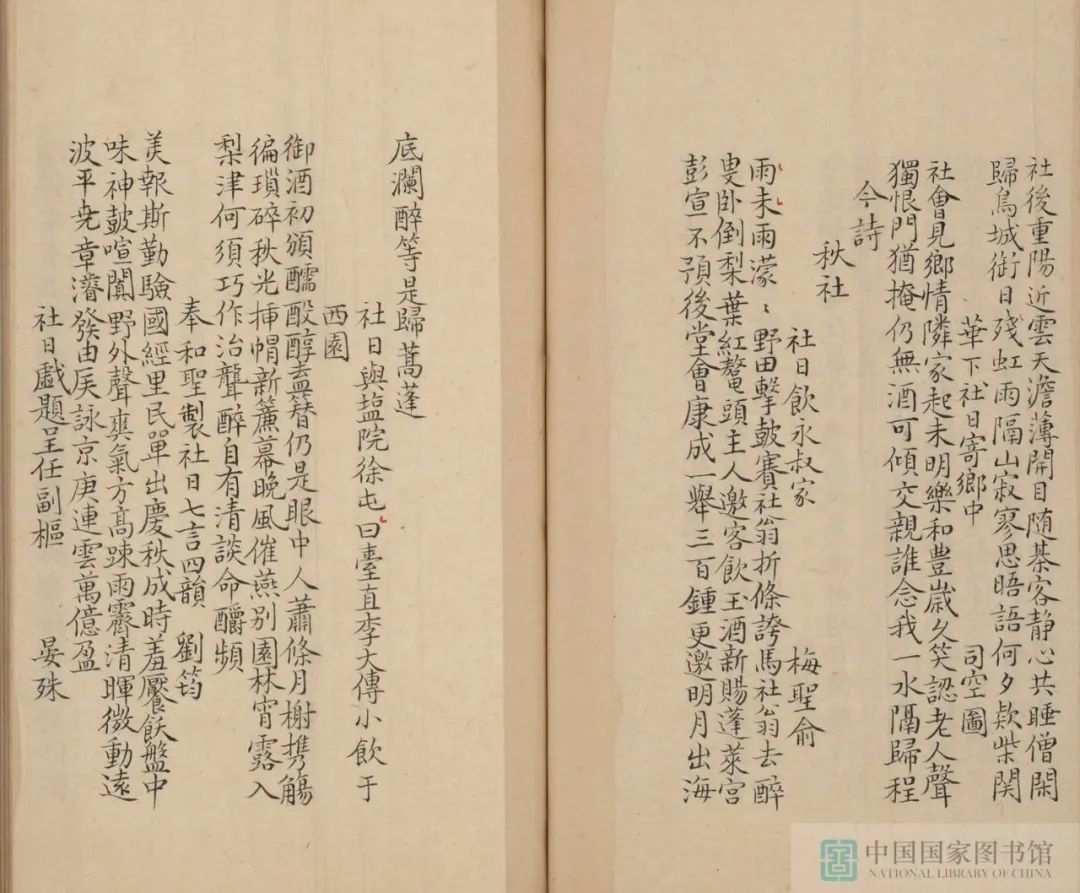 社後重陽近雲天澹薄開目随棊客静心共睡僧閑
歸鳥城銜日残虹雨隔山寂寥思晤語何夕欵柴関
華下社日寄鄉中 司空圖
社會見鄉情隣家起未明樂和豊歲久笑認老人聲
獨恨門猶掩仍無酒可傾交親誰念我一水隔歸程
今詩
秋社
社日飲永叔家 梅聖俞
雨未雨濛〻野田擊鼓賽社翁折條誇馬社翁去醉
叟卧倒梨葉紅鼇頭主人邀客飲玉酒新賜蓬萊宮
彭宣不預後堂會康成一舉三百鍾更邀明月出海
底瀾醉等是歸蒿蓬
社日與盐院徐屯曰臺直李大傳小飲于
西園
御酒初頒醹酘醇盍簪仍是眼中人蕭條月榭携觴
徧瑣碎秋光揷帽新簾幕晚風催燕別園林宵露入
梨津何須巧作治聾醉自有清談命釂頻
奉和聖製社日七言四韻 劉筠
羙報斯勤驗國經里民單出慶秋成時羞饜飫盤中
味神鼓喧闐野外聲爽氣方高踈雨霽清暉微動遠
波平尭章濬發由扆詠京庾連雲萬億盈
社日戲題呈任副樞 晏殊
中国国家图书馆
NATIONAL LIBRARY OF CHINA